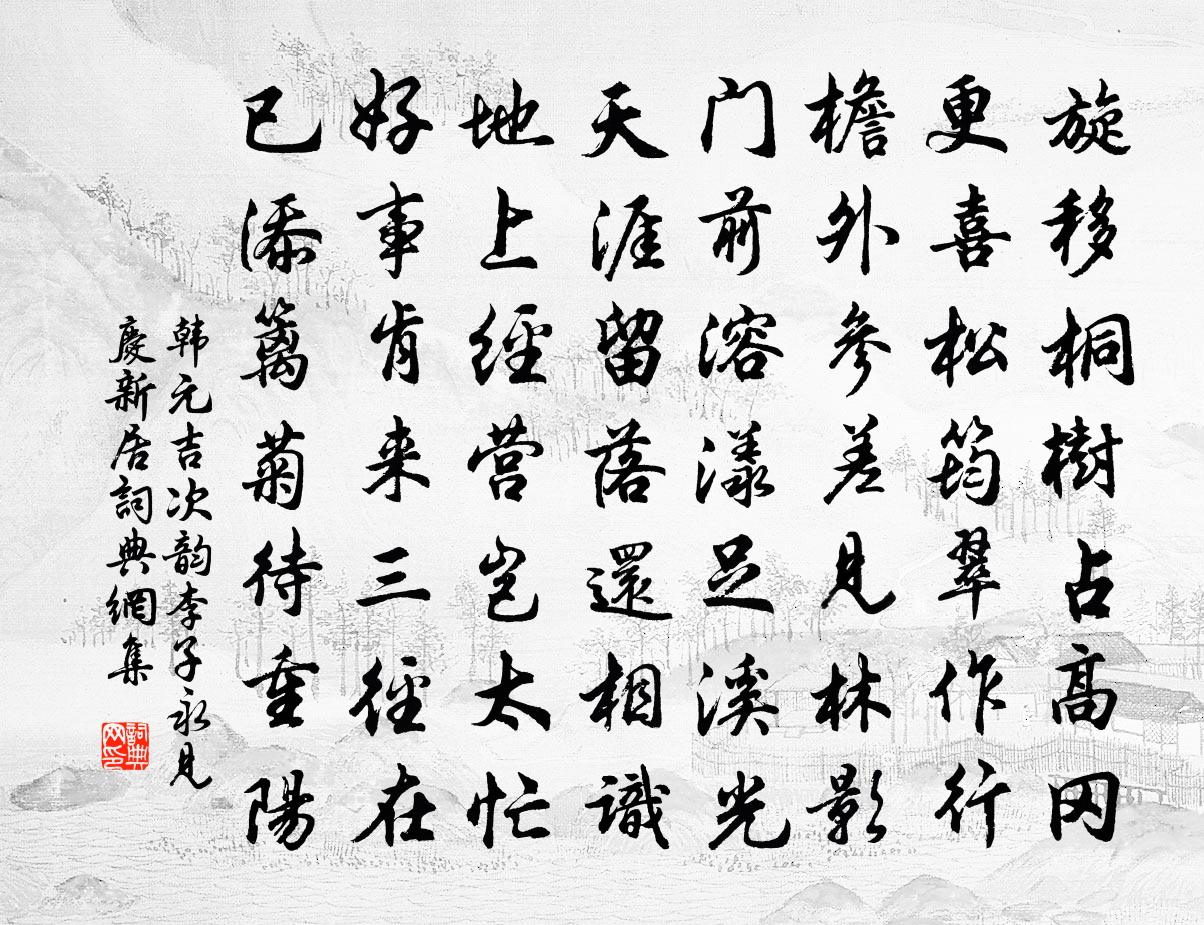 旋移桐樹占高冈
更喜松筠翠作行
檐外参差见林影
门前溶漾足溪光
天涯留落還相識
地上經营岂太忙
好事肯来三徑在
已添篱菊待重陽
韩元吉次韵李子永见
慶新居詞典網集
詞典网印